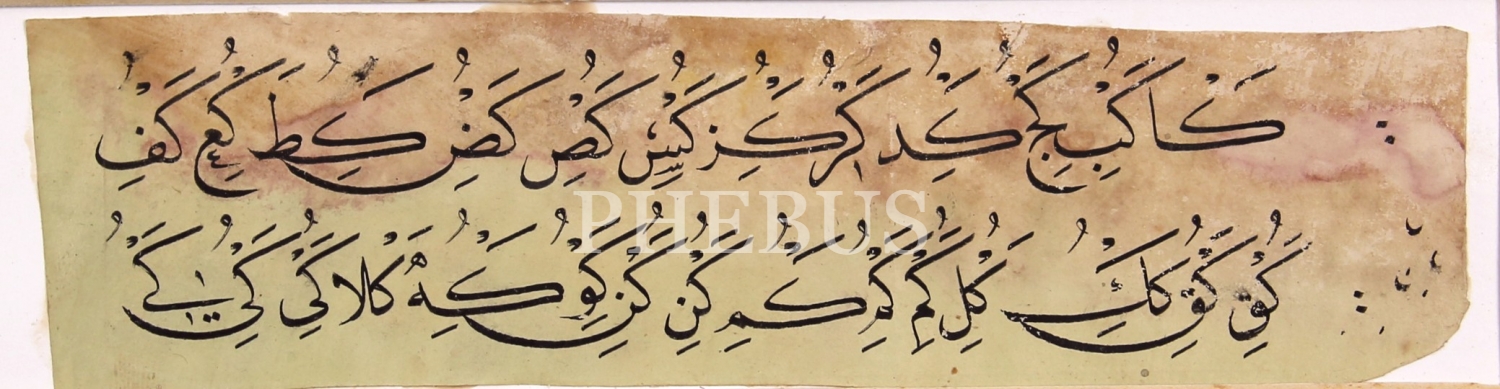 كا كب كج كد كر كز كس كص كض كط كع كف
كق كق كك كل كم كم كم كن كن كو كه كلا كى كى كي
PHEBUS